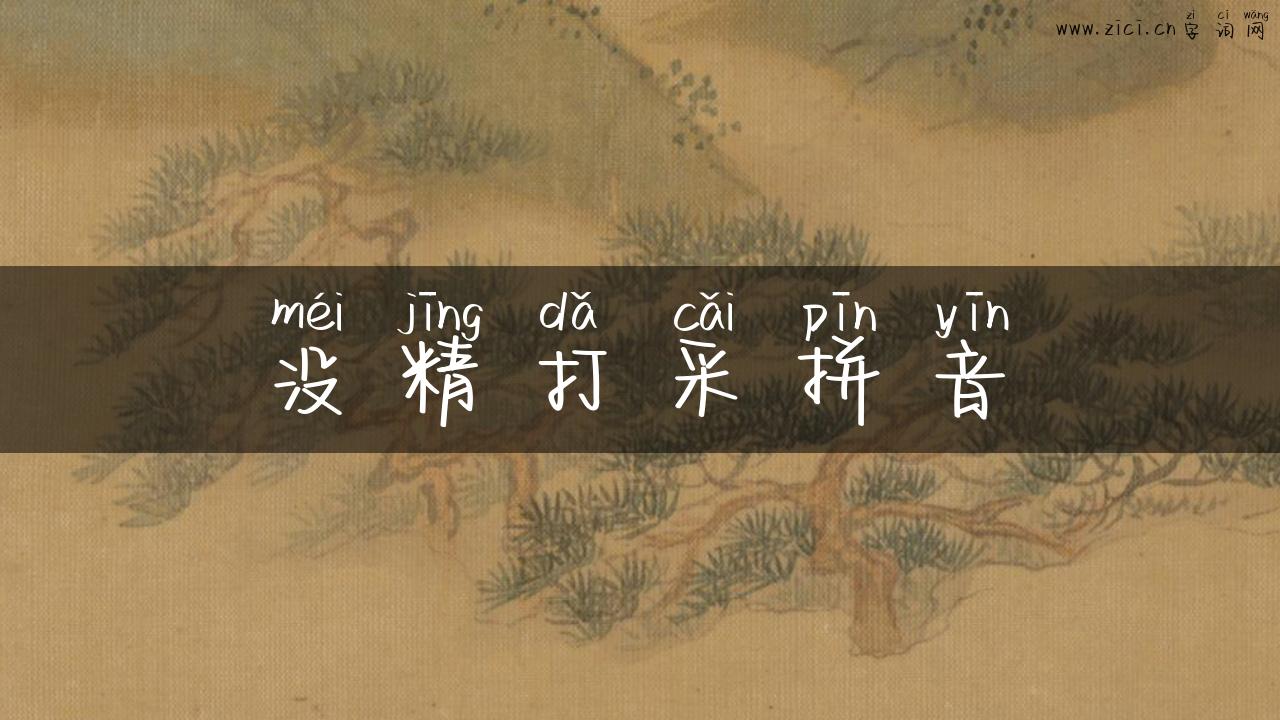 zì cí wǎng
www.zīcī.cn 字词网
méi jīng dǎ cǎi pīn yīn
没精打采拼音